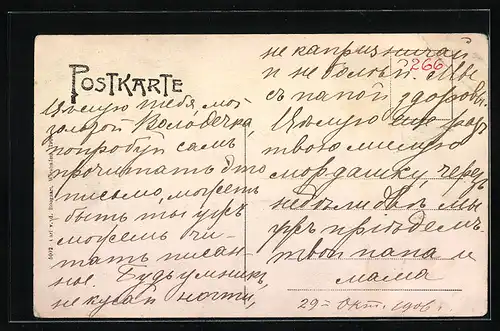 POSTKARTE
266
Цѣлую тебя, мой
золотой Володечка,
попробуй самъ
прочитать это
письмо, можетъ
быть ты ужъ
можешь чи-
тать писан-
ное. Будь умникъ,
не кусай ногти,
не капризничай
и не болѣй. Мы
съ папой здоровы.
Цѣлую разъ
твою милую
мордашку, черезъ
недѣли двѣ мы
ужъ пріѣдемъ.
твои папа и
мама
29го Окт. 1906 г.